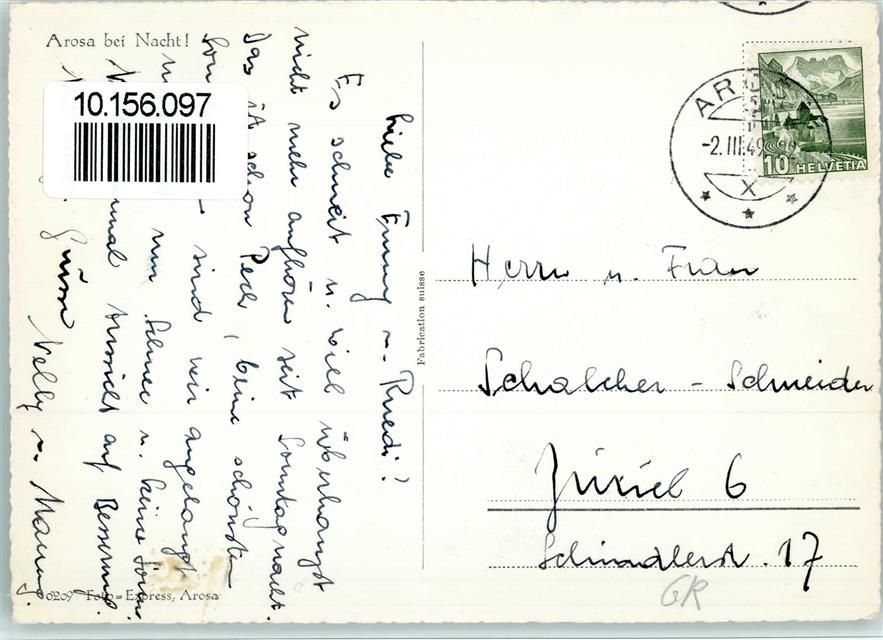 Arosa bei Nacht!
10.156.097
Liebe Emmy u. Ruedi!
Es schneit u. will überhaupt
nicht mehr aufhören seit Sonntag nacht.
Das ist schon Pech, keine schönste
Son sind wir angelangt
nun Schnee u. keine Sonne.
mal auf Besserung.
Nelly u. Manny.
10209 Foto=Express, Arosa
Fabrication suisse
AROSA
-2.III.49
X
10 HELVETIA
Herrn u. Frau
Schalcher - Schneider
Zürich 6
Schindlerst. 17
GR